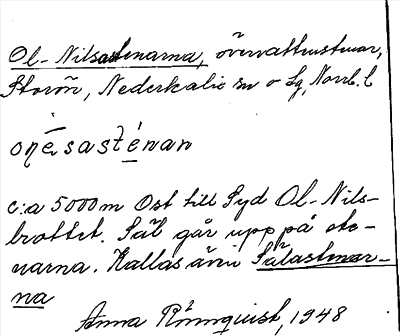 Ol-Nilsastenarna, övervattenstenar,
Storön, Nederkalix sn o Lg, Norrb. l
oņésasténan
c:a 5000 m Ost till Syd Ol-Nils-
brottet. Säl går upp på ste-
narna. Kallas även Sälastenar-
na
Anna Rönnquist, 1948